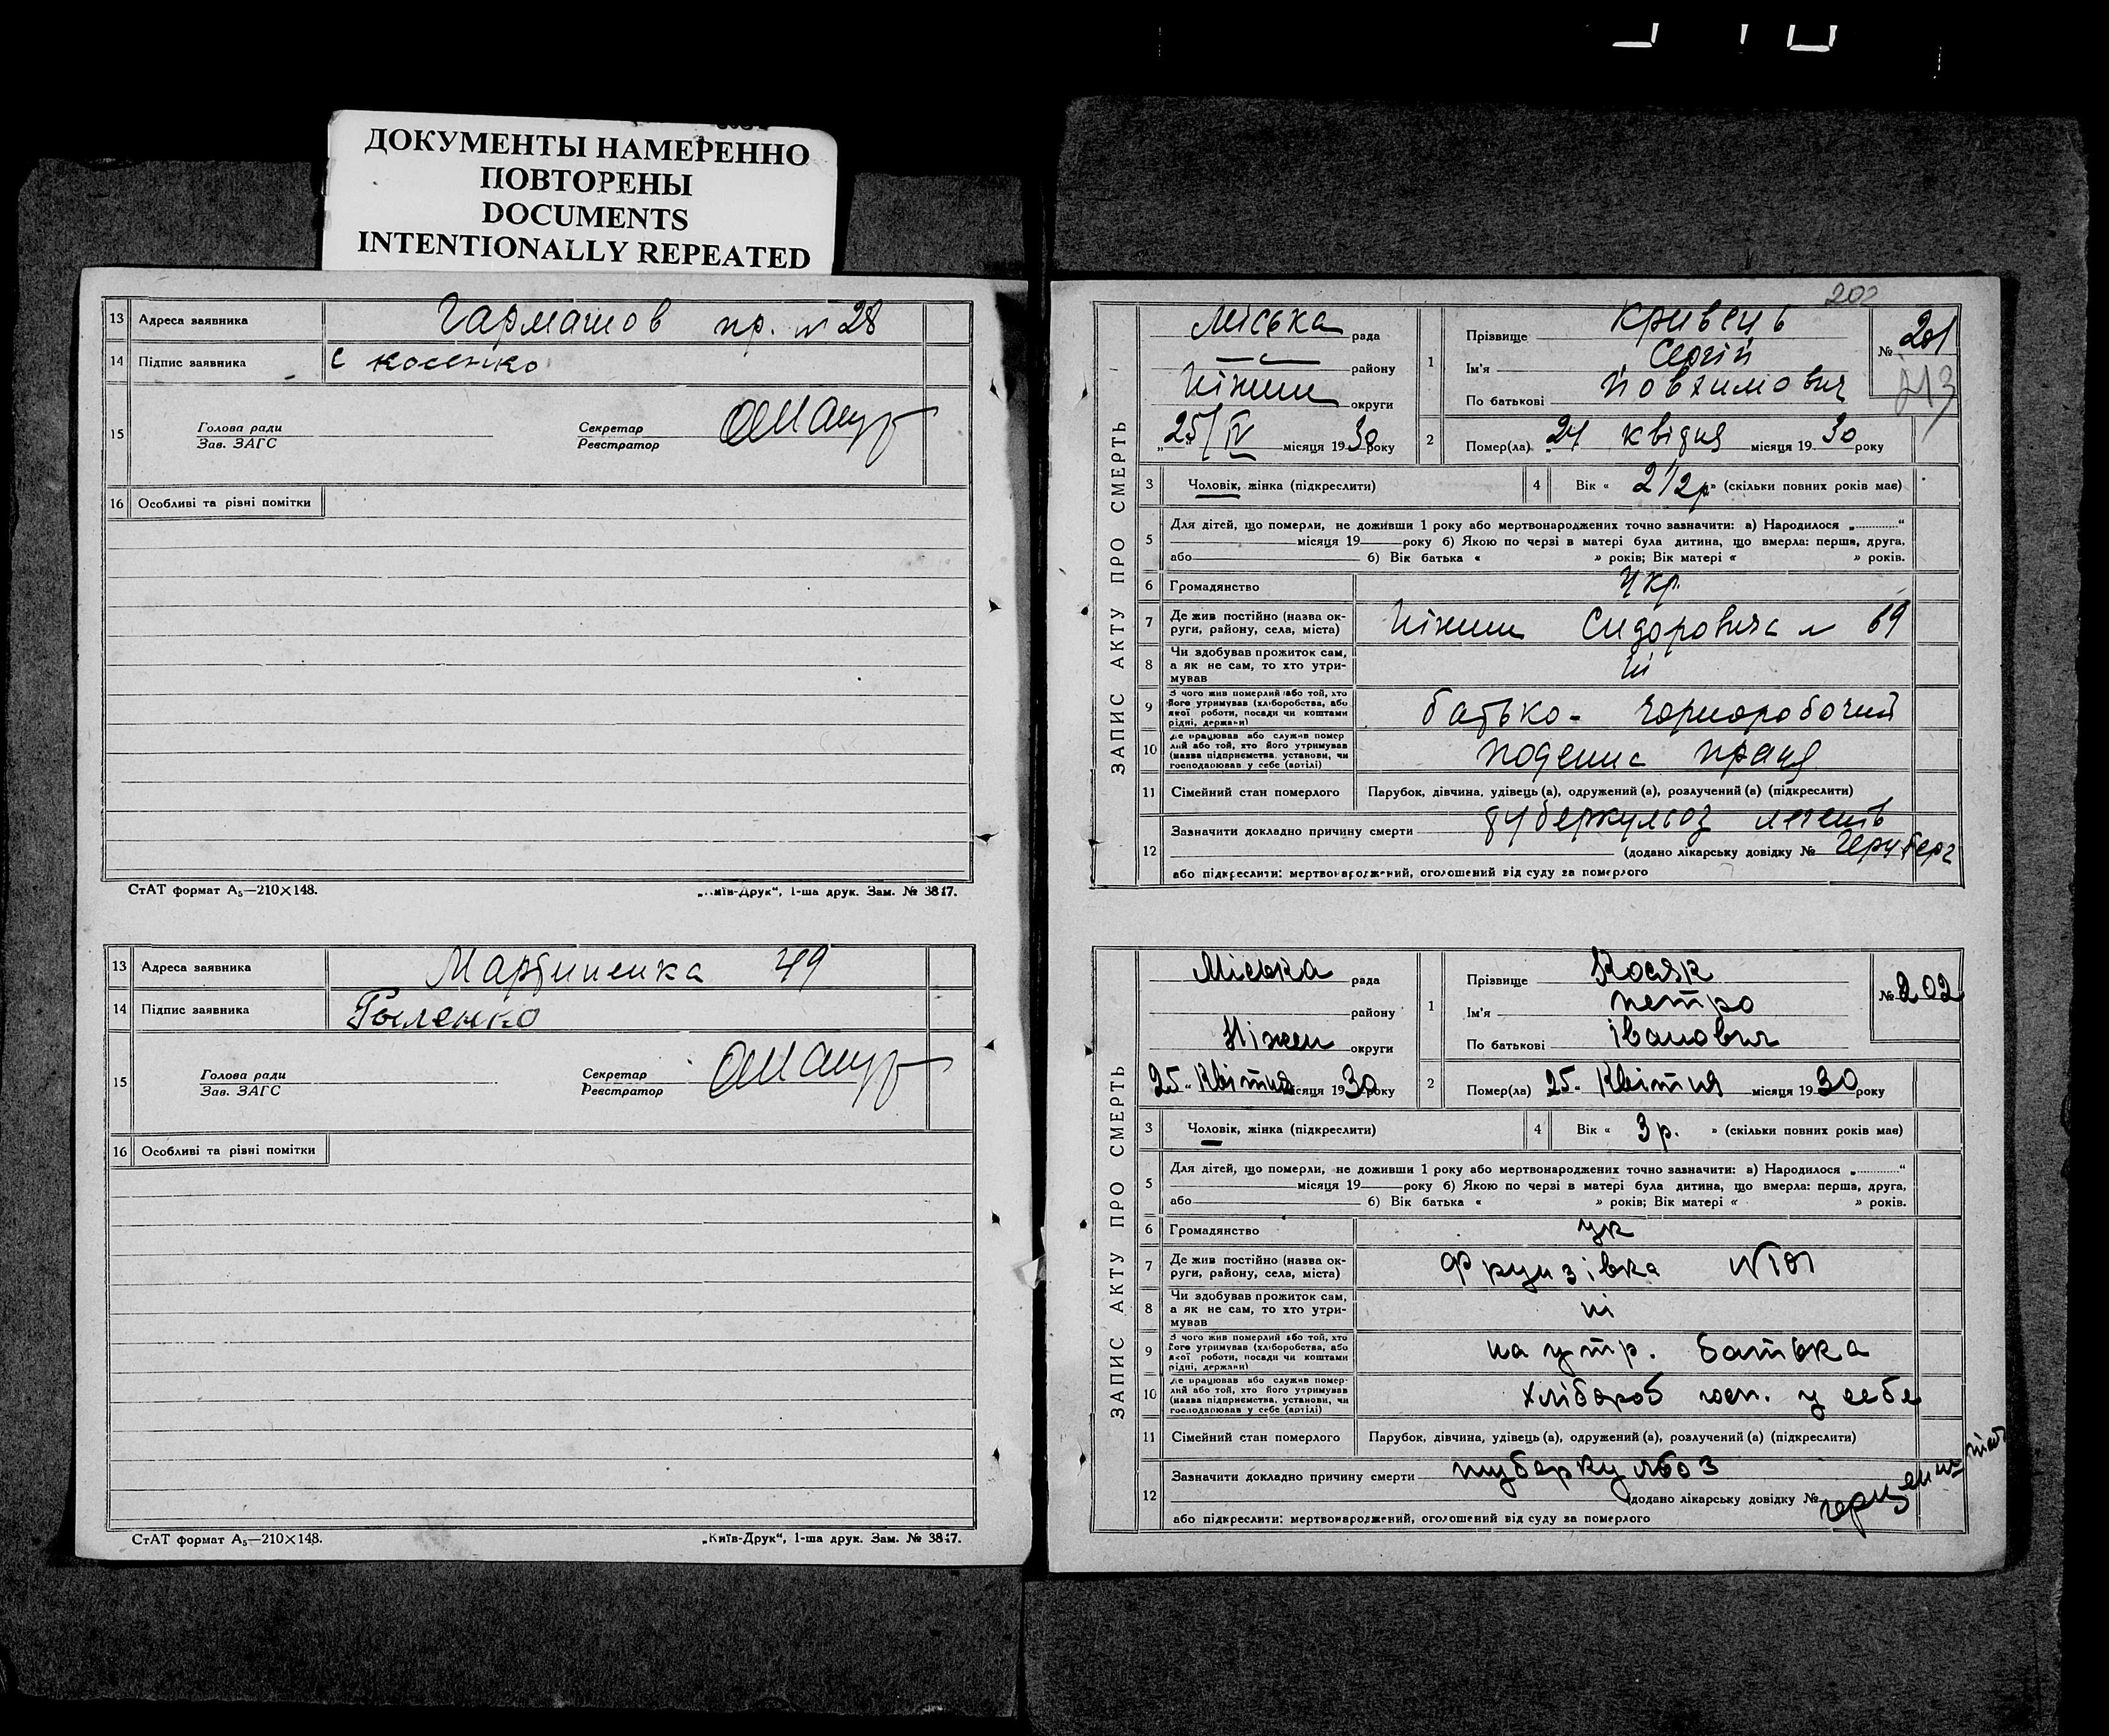 ДОКУМЕНТЫ НАМЕРЕННО
ПОВТОРЕНЫ
DOCUMENTS
INTENTIONALLY REPEATED
13 Адреса заявника Гармашов пр. № 28
14 Підпис заявника С Косенко
15 Голова ради
Зав. ЗАГС
Секретар
Реєстратор
16 Особливі та різні помітки
СтАТ формат А₅—210×148.
„Київ-Друк“, 1-ша друк. Зам. № 3847.
13 Адреса заявника Мартиненка 49
14 Підпис заявника
15 Голова ради
Зав. ЗАГС
Секретар
Реєстратор
16 Особливі та різні помітки
СтАТ формат А₅—210×148.
„Київ-Друк“, 1-ша друк. Зам. № 3847.
202
ЗАПИС АКТУ ПРО СМЕРТЬ
Міська рада
району
Ніжин округи
„25/IV місяця 1930 року
1 Прізвище Кривець
Ім'я Сергій
По батькові Йовхимович
№ 201
213
2 Помер(ла) 24 квітня місяця 1930 року
3 Чоловік, жінка (підкреслити)
4 Вік « 2 1/2 р » (скільки повних років має)
5 Для дітей, що померли, не доживши 1 року або мертвонароджених точно зазначити: а) Народилося „............“
місяця 19 року б) Якою по черзі в матері була дитина, що вмерла: перша, друга,
або б) Вік батька « » років; Вік матері « » років.
6 Громадянство Укр.
7 Де жив постійно (назва округи, району, села, міста) Ніжин Сидоровича № 69
8 Чи здобував прожиток сам,
а як не сам, то хто утримував
ні
9 З чого жив померлий або той, хто
його утримував (хліборобства, або
якої роботи, посади чи коштами
рідні, держави)
батько - чорноробочий
10 Де працював або служив помер
лий або той, хто його утримував
(назва підприємства, установи, чи
господарював у себе (артілі)
поденна праця
11 Сімейний стан померлого Парубок, дівчина, удівець (а), одружений (а), розлучений (а) (підкреслити)
12 Зазначити докладно причину смерти туберкульоз легень
(додано лікарську довідку №
або підкреслити: мертвонароджений, оголошений від суду за померлого
ЗАПИС АКТУ ПРО СМЕРТЬ
Міська рада
району
Ніжен округи
25 „ Квітня місяця 1930 року
1 Прізвище Косяк
Ім'я Петро
По батькові Іванович
№ 202
2 Помер(ла) 25. Квітня місяця 1930 року
3 Чоловік, жінка (підкреслити)
4 Вік « 3 р. » (скільки повних років має)
5 Для дітей, що померли, не доживши 1 року або мертвонароджених точно зазначити: а) Народилося „............“
місяця 19 року б) Якою по черзі в матері була дитина, що вмерла: перша, друга,
або б) Вік батька « » років; Вік матері « » років.
6 Громадянство ук
7 Де жив постійно (назва округи, району, села, міста) Фрунзівка № 101
8 Чи здобував прожиток сам,
а як не сам, то хто утримував
ні
9 З чого жив померлий або той, хто
його утримував (хліборобства, або
якої роботи, посади чи коштами
рідні, держави)
на утр. батька
10 Де працював або служив померлий або той, хто його утримував
(назва підприємства, установи, чи
господарював у себе (артілі)
хлібороб госп. у себе
11 Сімейний стан померлого Парубок, дівчина, удівець (а), одружений (а), розлучений (а) (підкреслити)
12 Зазначити докладно причину смерти туберкульоз
(додано лікарську довідку №
або підкреслити: мертвонароджений, оголошений від суду за померлого